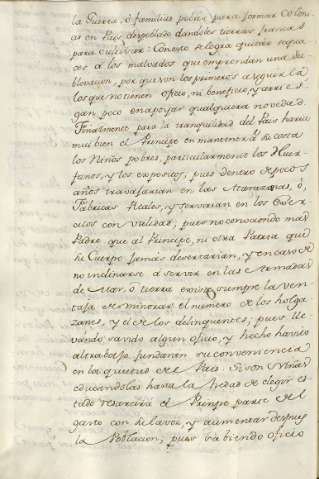 la Guerra, ó familias pobres para formar Colonias
en Pais despoblado dandoles tierras francas
para cultivar: Conesto se logra quietar
a los malvados que emprendan una
blovacion, por que son los primeros a seguirla
los que no tienen oficio, ni beneficio, y arries-
gan poco en apoyar qualquiera novedad.
Finalmente para la tranquilidad del Pais haria
mui bien el Principe en mantener à su costa
los Niños pobres, particularmente los Huer-
fanos, y los expositos, pues dentro de pocos
años trabajarian en las Atarazanas, ò,
Fabricas Reales, y servirian en los Exer-
citos con validad; pues no conociendo mas
Padre que al Principe, ni otra Patria que
su Cuerpo jamàs desertarian, y en caso de
no inclinarse à servir en las Armadas
de Mar, ò tierra siempre la ven-
taja de minorar el numero de los holga-
zanes, y el de los delinquentes; pues lle-
vando savido algun oficio, y hecho havito
al trabajo fundaran su conveniencia
en la quietud del Pais. Si son Niñas
educandolas hasta la hedad de elegir es-
tado resarcirà el Principe parte del
gasto con su lavor, y aumentar despues
la Poblacion; pues sabiendo oficio